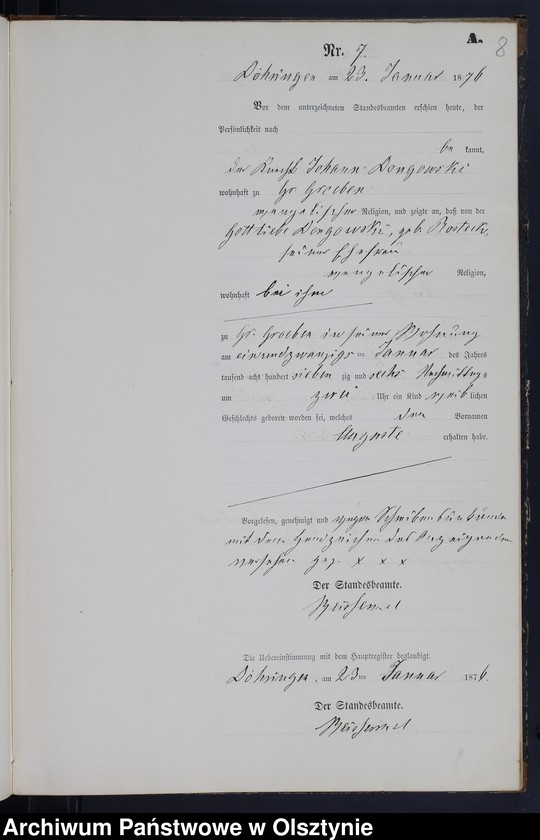 A.
8
Nr. 7.
Döhringen am 23. Januar 1876
Vor dem unterzeichneten Standesbeamten erschien heute, der
Persönlichkeit nach
be kannt,
der Knecht Johann Dengowski
wohnhaft zu Gr Groeben
evangelischer Religion, und zeigte an, daß von der
Gottliebe Dengowski, geb. Rostek,
seiner Ehefrau
evangelischer Religion,
wohnhaft bei ihm
zu Gr. Groeben in seiner Wohnung
am einundzwanzigsten Januar des Jahres
tausend acht hundert sieben zig und sechs Nachmittags
um zwei Uhr ein Kind weib lichen
Geschlechts geboren worden sei, welches den Vornamen
Auguste erhalten habe.
Vorgelesen, genehmigt und wegen Schreibensunkunde
mit dem Handzeichen des Anzeigenden
versehen gez. x x x
Der Standesbeamte.
Die Uebereinstimmung mit dem Hauptregister beglaubigt.
Döhringen, am 23ten Januar 1876.
Der Standesbeamte.
Archiwum Państwowe w Olsztynie